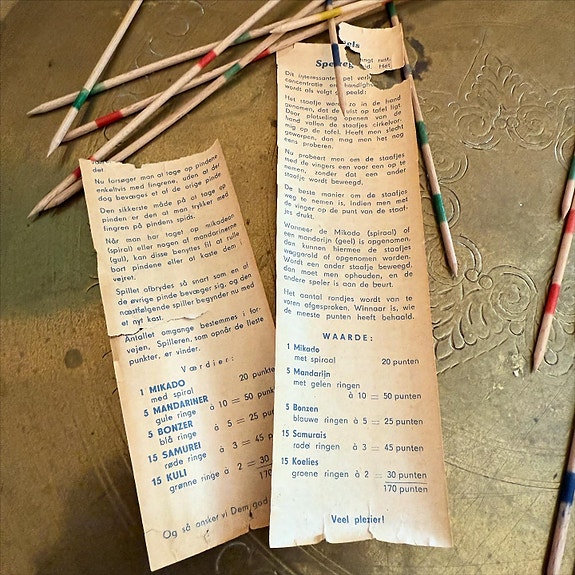 det
Nu forsøger man at tage op pindene
enkeltvis med fingrene, uden at der-
dag bevæges et af de øvrige pinde
Den sikreste måde på at tage op
pinden er den at man trykker med
fingren på pindens spids.
Når man har taget op mikadoen
(spiral) eller nogen af mandarinerne
(gul), kan disse benyttes fil at rulle
bort pindene eller at kaste dem i
vejret.
Spillet afbrydes så snart som en af
de øvrige pinde bevæger sig, og den
næstfølgende spiller begynder nu med
et nyt kast.
Antallet omgange bestemmes i for-
vejen. Spilleren, som opnår de fleste
punkter, er vinder.
Værdier:
1 MIKADO
med spiral 20 punkte
5 MANDARINER
gule ringe à 10 = 50 punkte
5 BONZER
blå ringe à 5 = 25 punk
15 SAMUREI
røde ringe à 3 = 45 p
15 KULI
grønne ringe à 2 = 30
170
Og så ønsker vi Dem god
els
Speleg
ngt rust,
id. Het
Dit interessante spel ver
concentratie en handigh
wordt als volgt speeld:
Het staafje wordt zo in de hand
genomen, dat de uist op tafel ligt
Door plotseling openen van de
hand vallen de staafjes cirkelvor-
mig op de tafel. Heeft men slecht
geworpen, dan mag men het nog
eens proberen.
Nu probeert men om de staafjes
met de vingers een voor een op te
nemen, zonder dat een ander
staafje wordt bewogen.
De beste manier om de staafjes
weg te nemen is, indien men met
de vinger op de punt van de staaf-
jes drukt.
Wanneer de Mikado (spiraal) of
een mandarijn (geel) is opgenomen,
dan kunnen hiermee de staafjes
weggerold of opgenomen worden.
Wordt een ander staafje bewogen,
dan moet men ophouden, en de
andere speler is aan de beurt.
Het aantal rondjes wordt van te
voren afgesproken. Winnaar is, wie
de meeste punten heeft behaald.
WAARDE:
1 Mikado
met spiraal 20 punten
5 Mandarijn
met gelen ringen
à 10 = 50 punten
5 Bonzen
blauwe ringen à 5 = 25 punten
15 Samurais
rode ringen à 3 = 45 punten
15 Koelies
groene ringen à 2 = 30 punten
170 punten
Veel plezier!